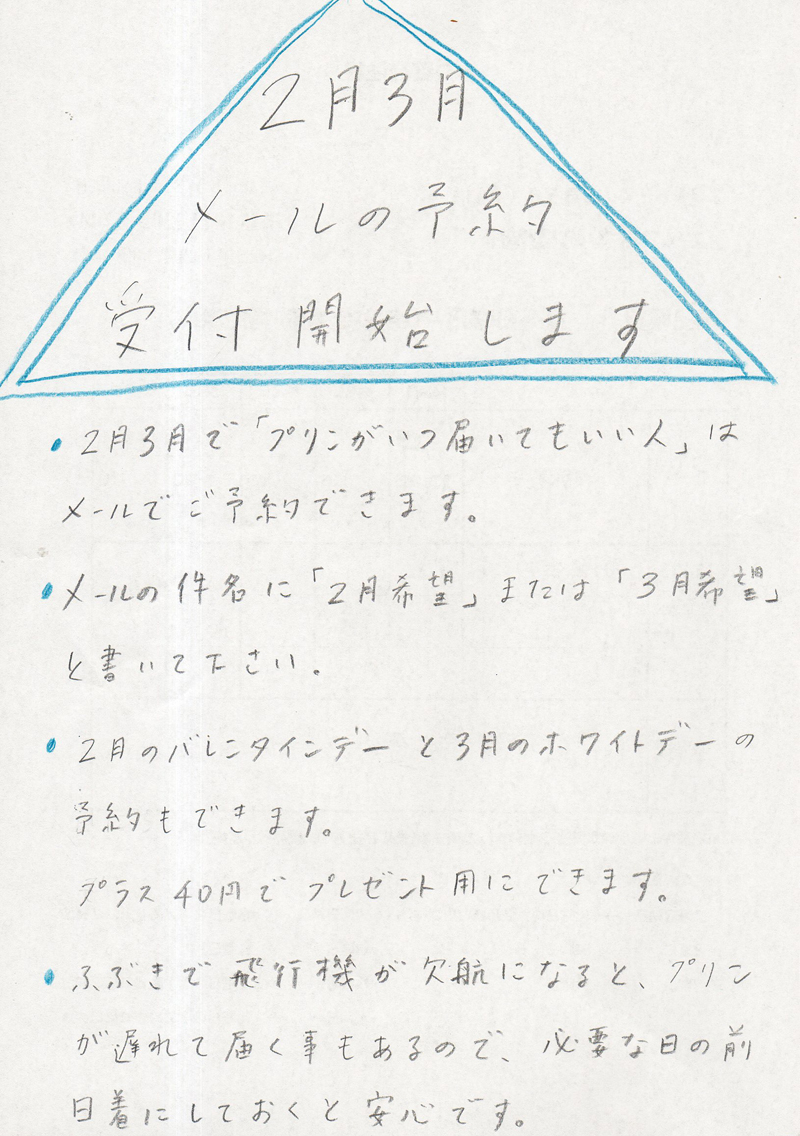 2月3月
メールの予約
受付開始します
• 2月3月で「プリンがいつ届いてもいい人」は
メールでご予約できます。
• メールの件名に「2月希望」または「3月希望」
と書いて下さい.
• 2月のバレンタインデーと3月のホワイトデーの
予約もできます。
プラス40円でプレゼント用にできます。
• ふぶきで飛行機が欠航になると、プリン
が遅れて届く事もあるので、必要な日の前
日着にしておくと安心です。